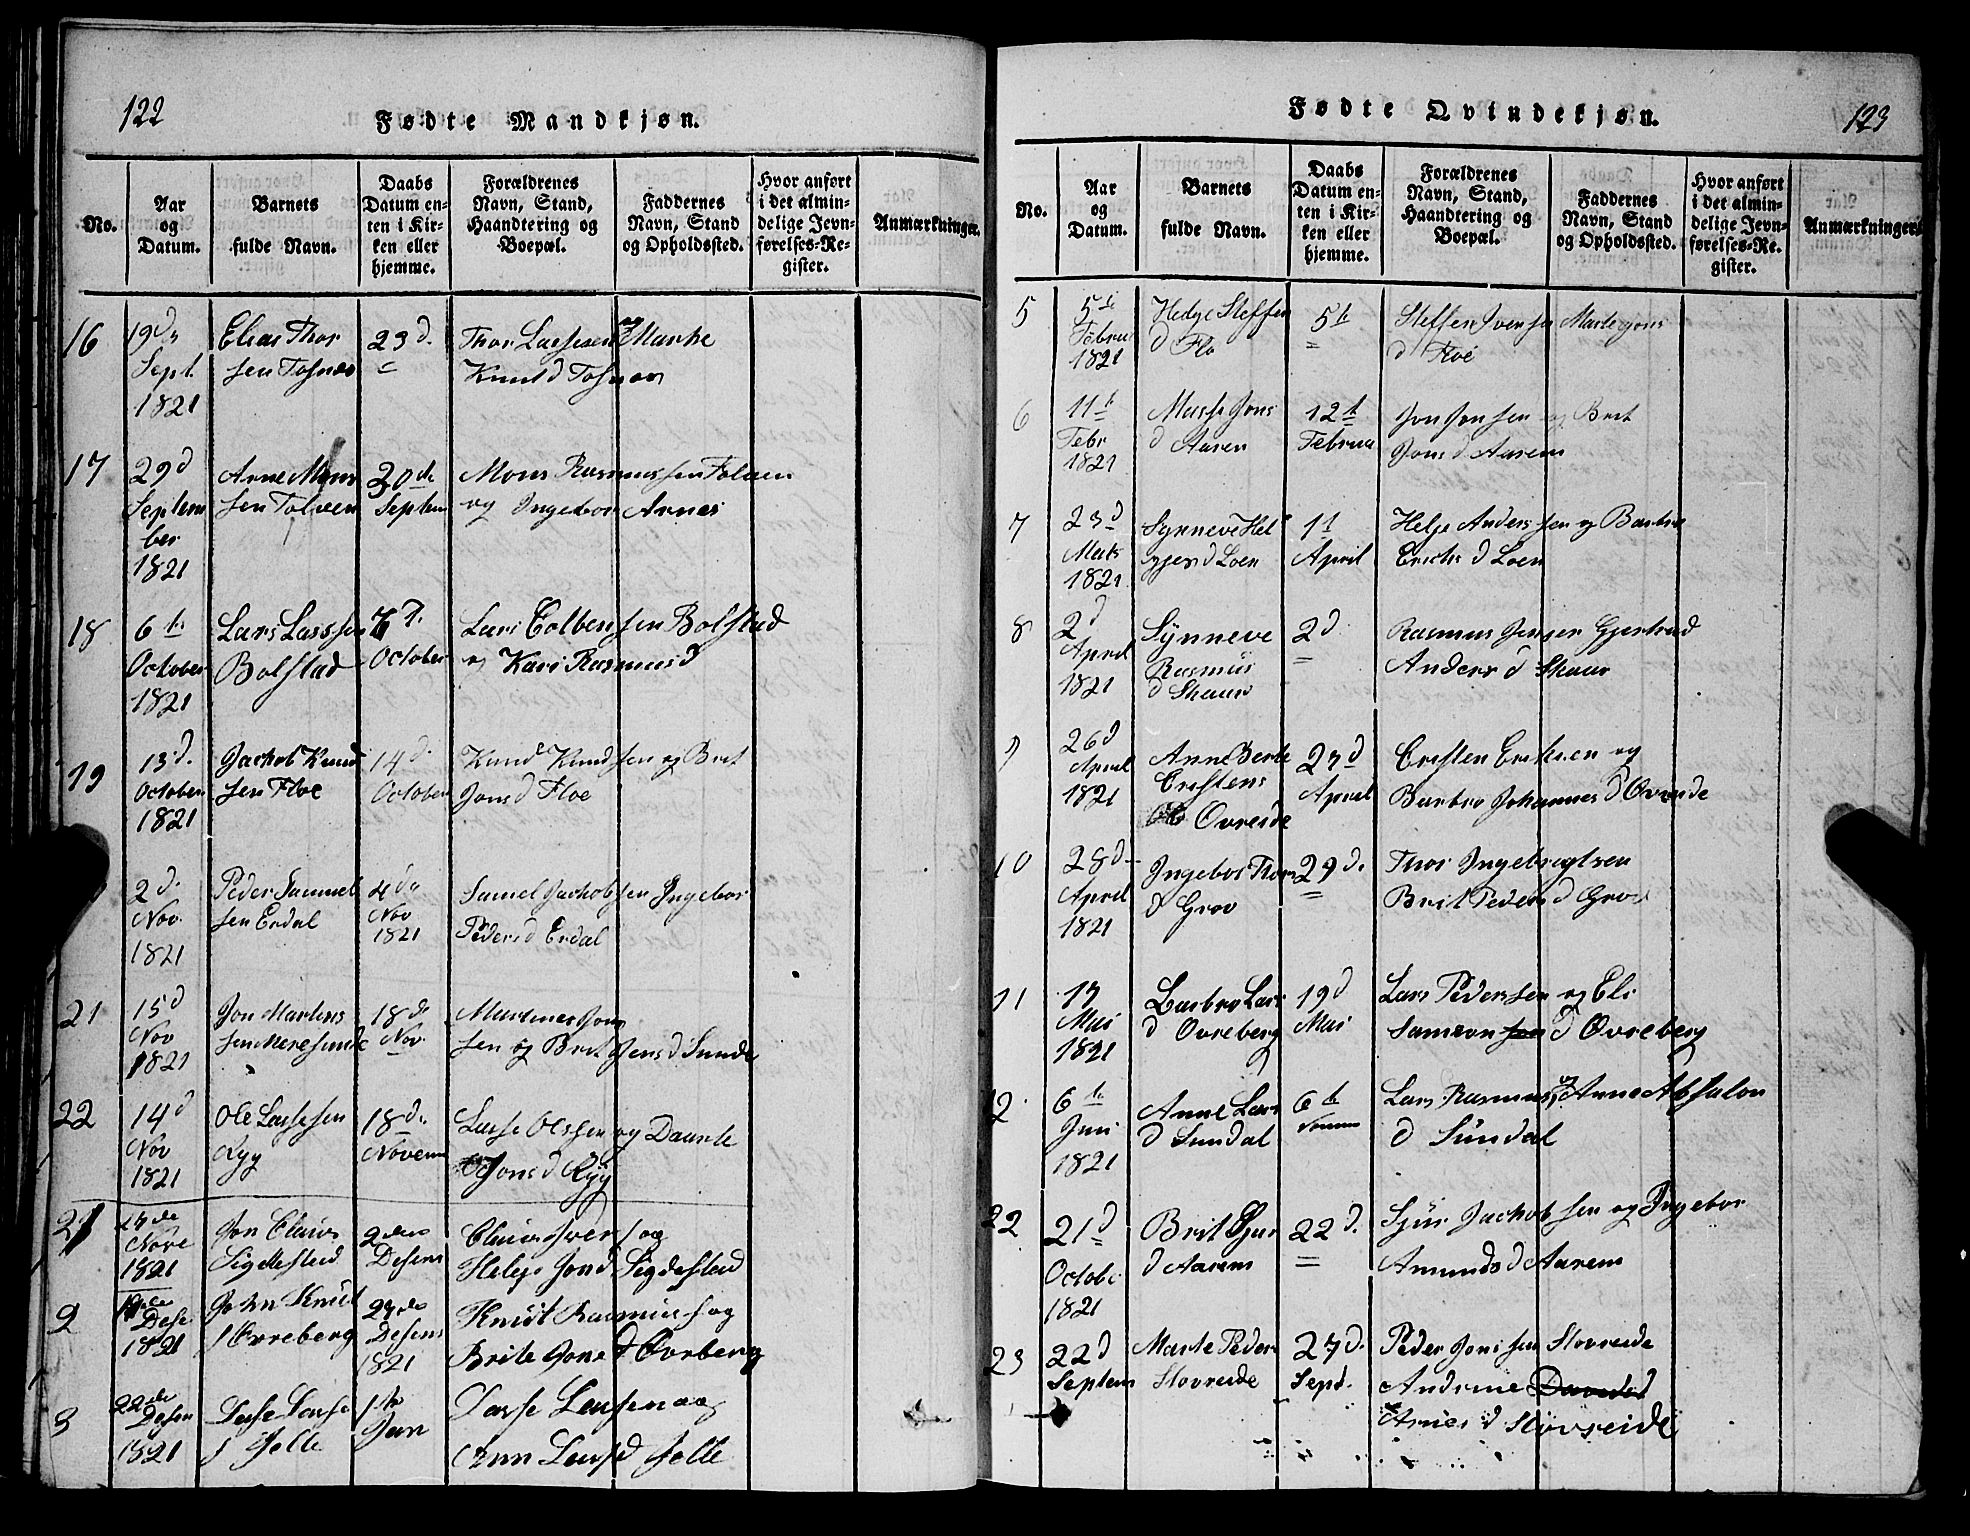 122
Fødte Mandkjøn.
No.
Aar
og
Datum.
Barnets
fulde Navn.
Daabs
Datum en-
ten i Kir-
ken eller
hjemme.
Forældrenes
Navn, Stand,
Haandtering og
Boepæl.
Faddernes
Navn, Stand
og Opholdssted.
Hvor anført
i det almin-
delige Jevn-
førelses-Re-
gister.
Anmærkninger.
16
19d
Sept.
1821
Elias Thor
sen Tosnæs
23d.
Thor Lassesen og Marthe
Knut d Tosnæs
17
29d
Septem
ber
1821
Arne Mons
sen Tolven
30de
Septem
Mons Rasmussen Tolven
og Ingebor Arnes
18
6te
October
1821
Lars Larssen
Bolstad
7d.
October
Lars Colbensen Bolstad
og Kari Rasmus d
19
13d.
October
1821
Jachob Knud
sen Floe
14d.
October
Knud Knudsen og Brit
Jons d Floe
2d.
Nov.
1821
Peder Samuel
sen Erdal
4de
Nov
1821
Samel Jachobsen Ingebor
Peders d Erdal
21
15d
Nov
1821
Jon Martens
sen
18de
Nov.
Martines Jon
sen og Brit Jens d Sunde
22
14d
Nov
1821
Ole Lassesen
Ryg
18d.
Novem
Lasse Olssen og Daarte
Jons d Ryg
21
Nove
1821
Jon Claus
Sigdestad
2den
Desem
Claus Iver s og
Helge Jon d Sigdestad
2
Dese
1821
John Knut
s Øvreberg
Desem
1821
Knut Rasmus s og
Brite Jone d Øvrberg
3
22de
Desem
1821
Lasse Lasse
s Jolle
1te
Jan
Lasse Lassen og
Ann Lasse d Jolle
Fødte Qvindekjøn.
123
No.
Aar
og
Datum.
Barnets
fulde Navn.
Daabs
Datum en-
ten i Kir-
ken eller
hjemme.
Forældrenes
Navn, Stand,
Haandtering og
Boepæl.
Faddernes
Navn, Stand
og Opholdssted.
Hvor anført
i det almin-
delige Jevn-
førelses-Re-
gister.
Anmærkninger
5
5te
Februa
1821
Helge Steffen
d Flo
5te
Steffen Ivensen Marte Jons
d Floe
6
11te
Febr
1821
Masse Jons
d Aarem
12te
Februa
Jon Jonsen og Brit
Jons d Aarem
7
23d
Mats
1821
Synneve Hel
gjes d Loen
1t
April
Helje Anderssen og Barbro
Erichs d Loen
8
2d
April
1821
Synneve
Rasmus
d Skaar
2d.
Rasmus Jensen Gjertrud
Anders d Skaar
9
26d
April
1821
Anne Berte
Cristens
d Ovreide
27d
April
Cristen Eriksen og
Barbro Johannes d Øvreide
10
28d
April
1821
Ingebor Thors
d Grov
29d.
Thor Ingebrigtsen
Brit Peders d Grov
11
17
Mai
1821
Barbro Lars
d Ovreberg
19d
Mai
Lars Pedersen og Eli
Samson d Øvreberg
12
6te
Juni
1821
Anne Lars
d Sundal
6te
Lars Rasmus og Anne Absalon
d Sundal
22
21d
Octobe
1821
Brit Sjur
d Aarem
22d.
Sjur Jachobsen og Ingebor
Amunds d Aarem
23
22d
Septem
Marte Peders
Stovreide
27d.
Sept.
Peder Jonssen Stovreide
Andrine
Arnes d Stovreide